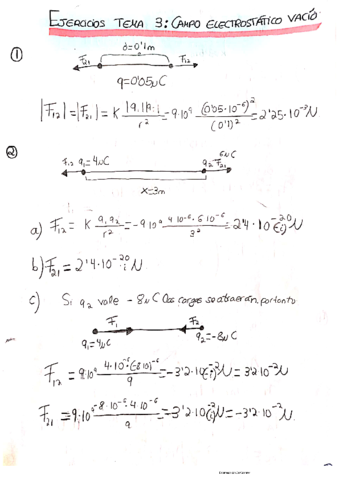 EJERCICIOS TEMA 3: CAMPO ELECTROSTÁTICO VACÍO
① d=0'1m
F₂₁ F₁₂
q=0'05μC
|F₁₂|=|F₂₁|= K |q₁|·|q₂| / r² = 9·10⁹ (0'05·10⁻⁶)² / (0'1)² = 2'25·10⁻³N
② F₁₂ q₁=4μC q₂ 6μC F₂₁
x=3m
a) F₁₂ = K q₁q₂ / r² = -9·10⁹ 4·10⁻⁶·6·10⁻⁶ / 3² = 2'4·10⁻²⁰(-i)N
b) F₂₁ = 2'4·10⁻²⁰ i N
c) Si q₂ vale -8μC las cargas se atraerán, por tanto
F₁ F₂
q₁=4μC q₂=-8μC
F₁₂ = 9·10⁹ 4·10⁻⁶·(-8·10⁻⁶) / 9 = -3'2·10⁻²(-i)N = 3'2·10⁻²N
F₂₁ = 9·10⁹ -8·10⁻⁶·4·10⁻⁶ / 9 = -3'2·10⁻²(i)N = -3'2·10⁻²N